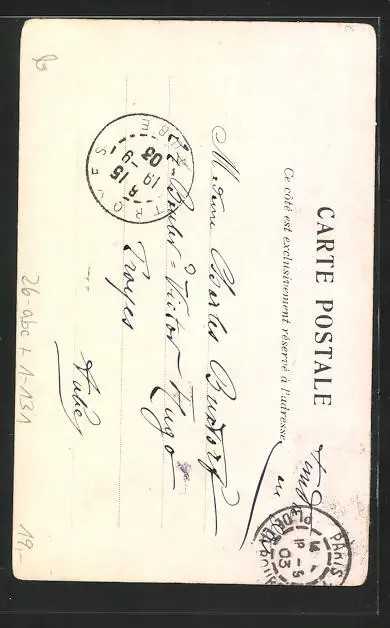 CARTE POSTALE
Ce côté est exclusivement réservé à l'adresse
Madame Charles Buxtorf
22 Boulev = Victor Hugo
Troyes
Aube
TROYES
AUBE
15
19 -9
03
PARIS
DEPART
03
26-abc t 1-131
19,-